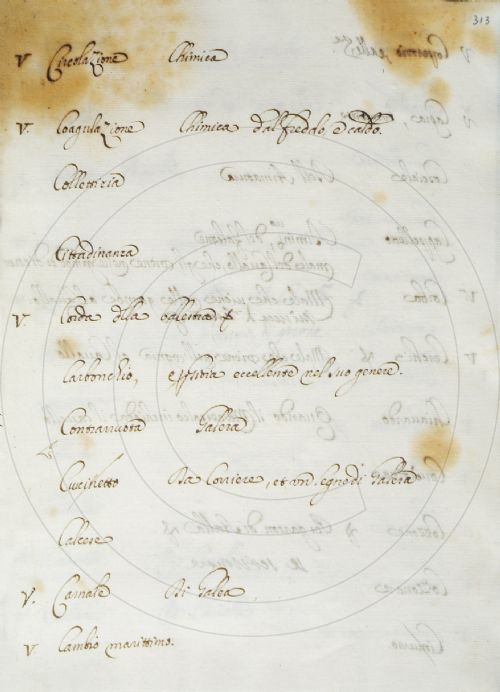 313
V Circolazione Chimica
V. Coagulazione Chimica dal freddo, e caldo.
Collettizia
Cittadinanza
V. Corda della balestra
Carbonchio, eccellente nel suo genere.
Contrarruota Galera
Cuscinetto Da Corriere, et un legno di Galera
Calcese
V. Canale Di Galea
V. Cambio marittimo.